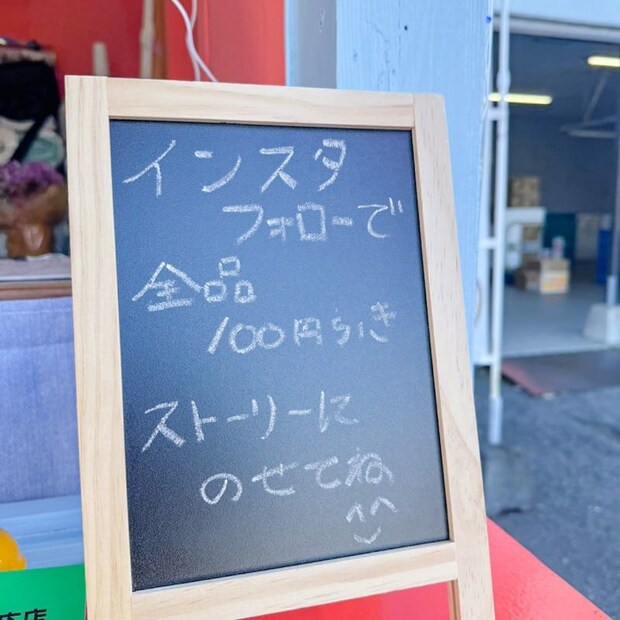 インスタ
フォローで
全品
100円引き
ストーリーに
のせてね